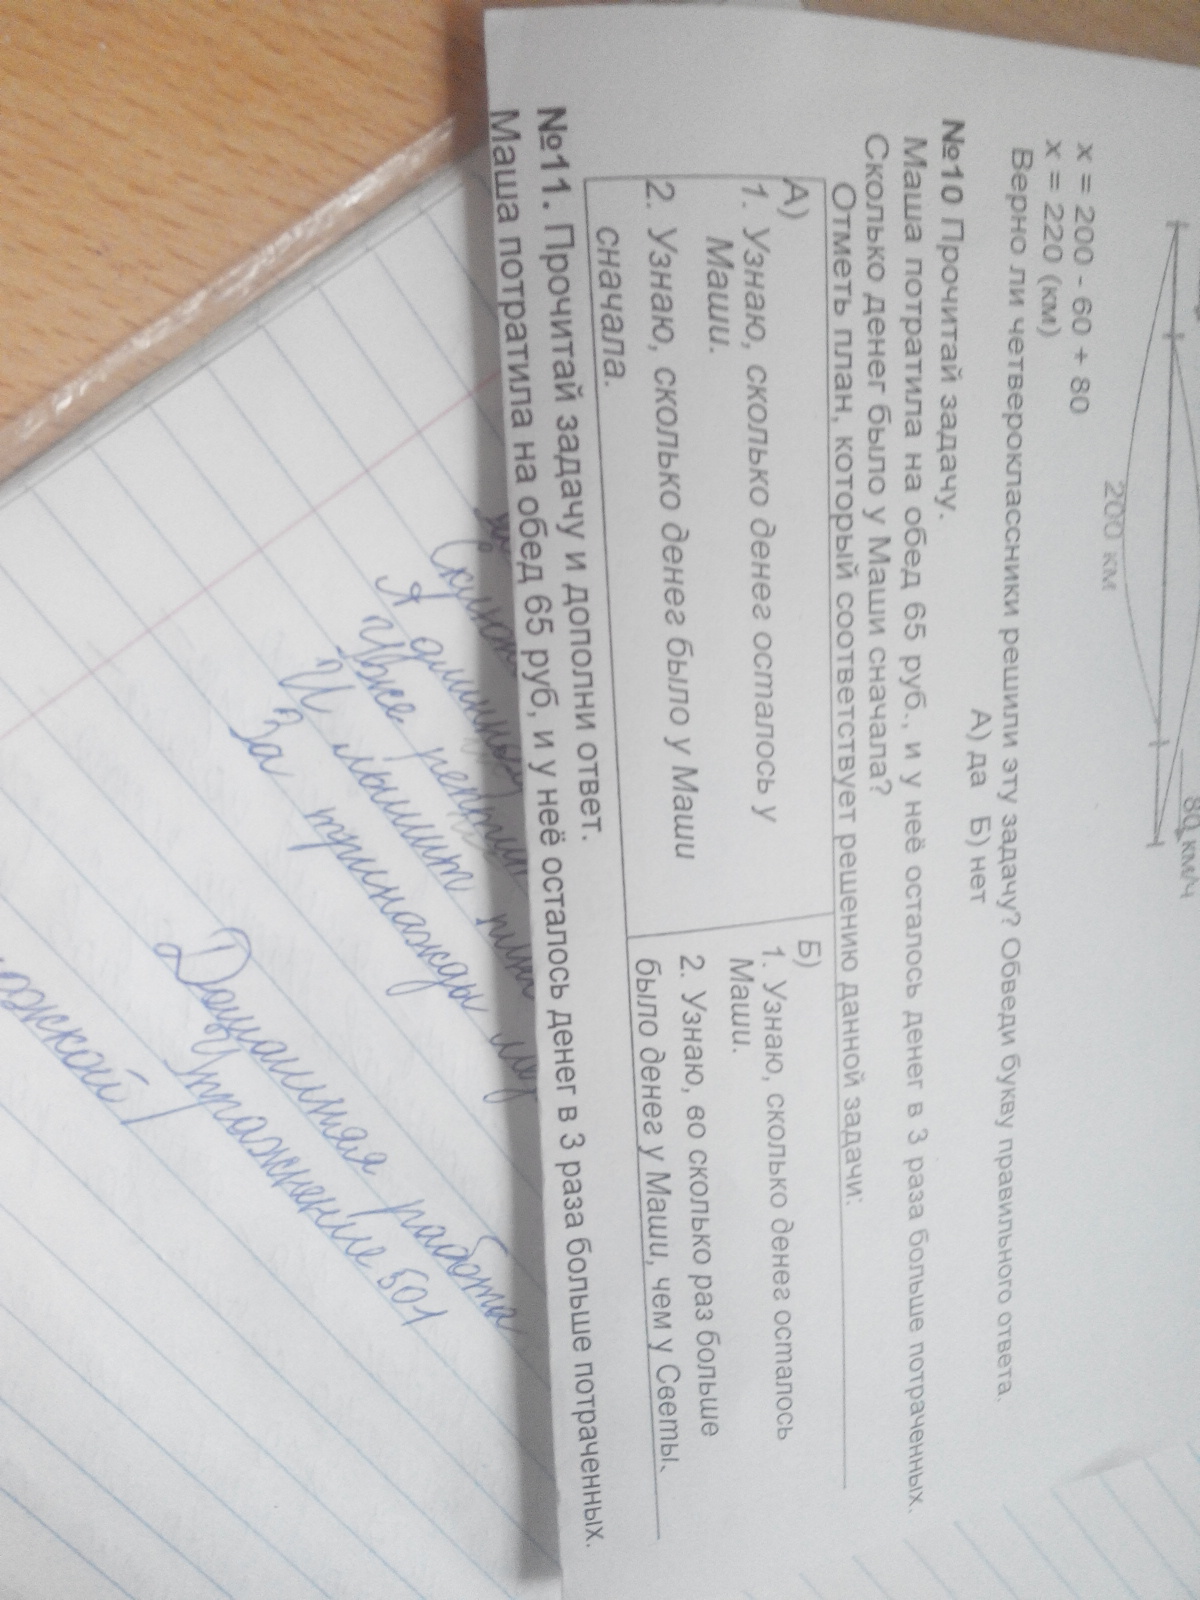 80 км/ч
200 км
x = 200 - 60 + 80
x = 220 (км)
Верно ли четвероклассники решили эту задачу? Обведи букву правильного ответа.
А) да Б) нет
№10 Прочитай задачу.
Маша потратила на обед 65 руб., и у неё осталось денег в 3 раза больше потраченных.
Сколько денег было у Маши сначала?
Отметь план, который соответствует решению данной задачи:
А)
1. Узнаю, сколько денег осталось у
Маши.
2. Узнаю, сколько денег было у Маши
сначала.
Б)
1. Узнаю, сколько денег осталось
Маши.
2. Узнаю, во сколько раз больше
было денег у Маши, чем у Светы.
№11. Прочитай задачу и дополни ответ.
Маша потратила на обед 65 руб, и у неё осталось денег в 3 раза больше потраченных.
Я длинный
Уже
И
За тринажды
Домашняя работа
Упражнение 501